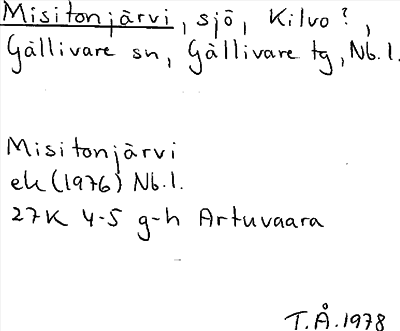 Misitonjärvi, sjö, Kilvo?,
Gällivare sn, Gällivare tg, Nb.l.
Misitonjärvi
ek (1976) Nb.l.
27K 4-5 g-h Artuvaara
T.Å.1978